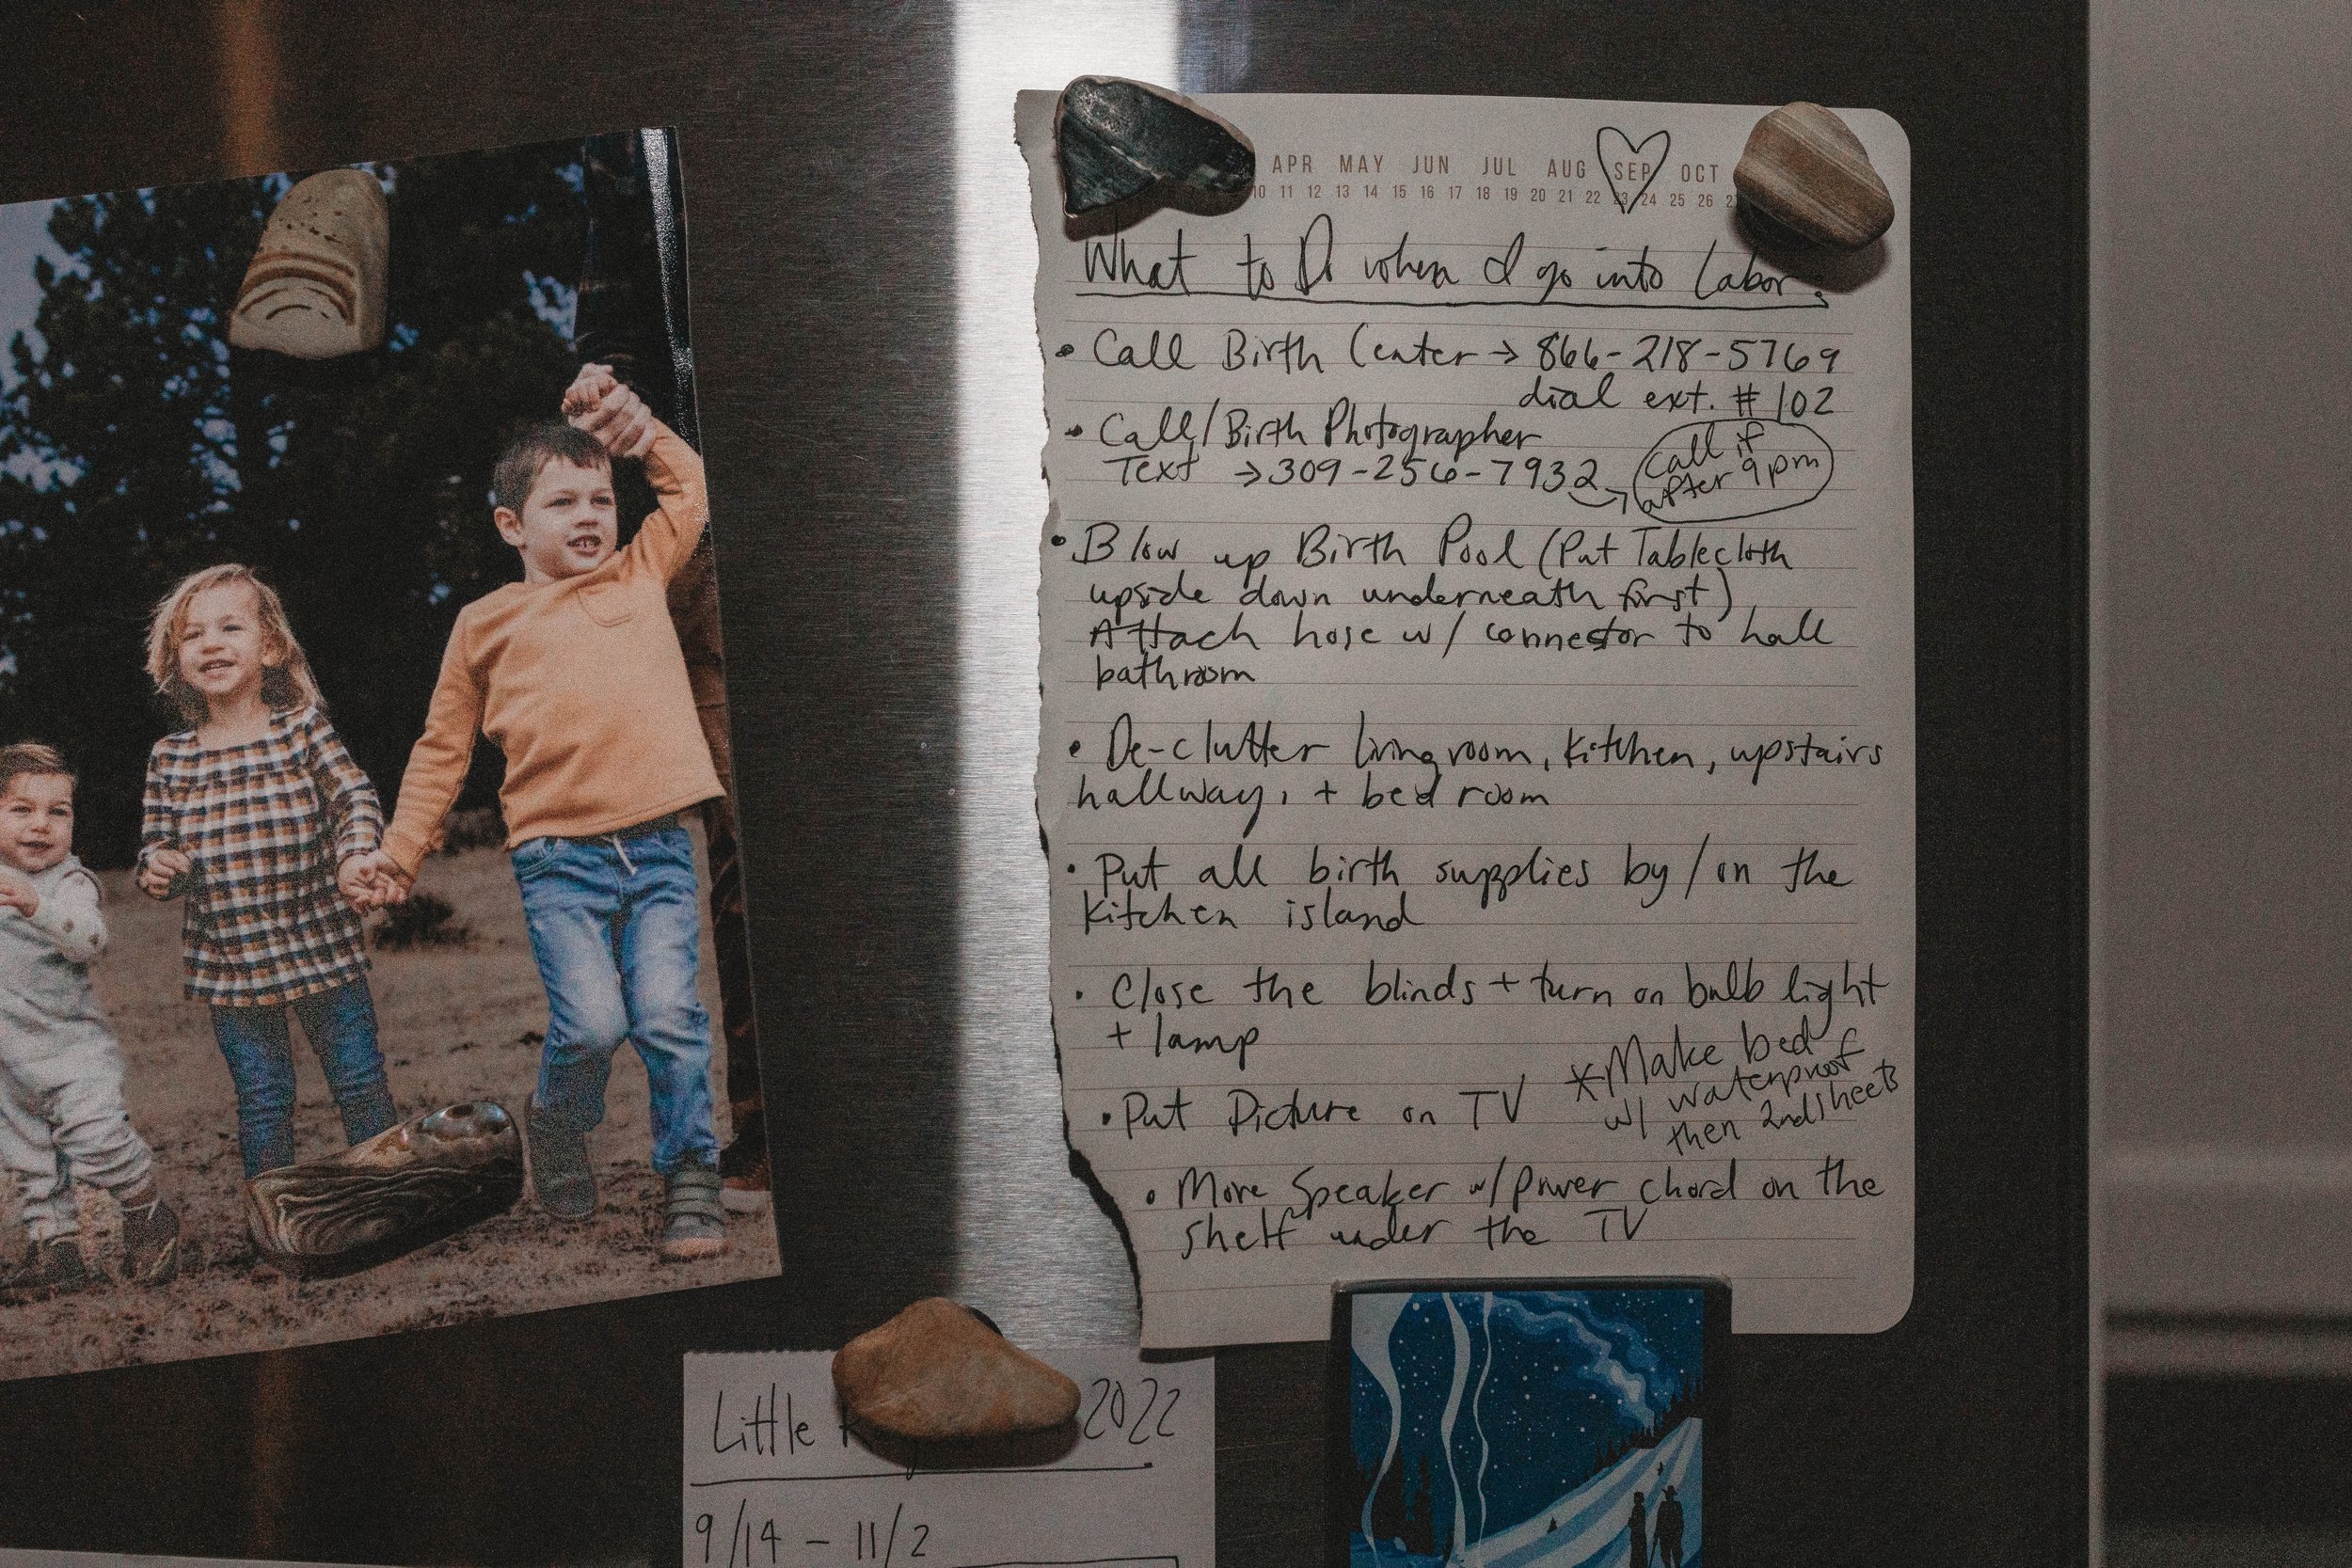 APR MAY JUN JUL AUG SEP OCT
10 11 12 13 14 15 16 17 18 19 20 21 22 23 24 25 26
What to Do when I go into Labor:
• Call Birth Center → 866-218-5769
dial ext. # 102
• Call/Birth Photographer
Text → 309-256-7932
call if
after 9pm
• Blow up Birth Pool (Put Tablecloth
upside down underneath first)
Attach hose w/ connector to hall
bathroom
• De-clutter livingroom, kitchen, upstairs
hallway, + bedroom
• Put all birth supplies by/on the
kitchen island
• Close the blinds + turn on bulb light
+ lamp
• Put Picture on TV
* Make bed
w/ waterproof
then 2nd sheets
• Move Speaker w/ power chord on the
shelf under the TV
Little 2022
9/14 - 11/2